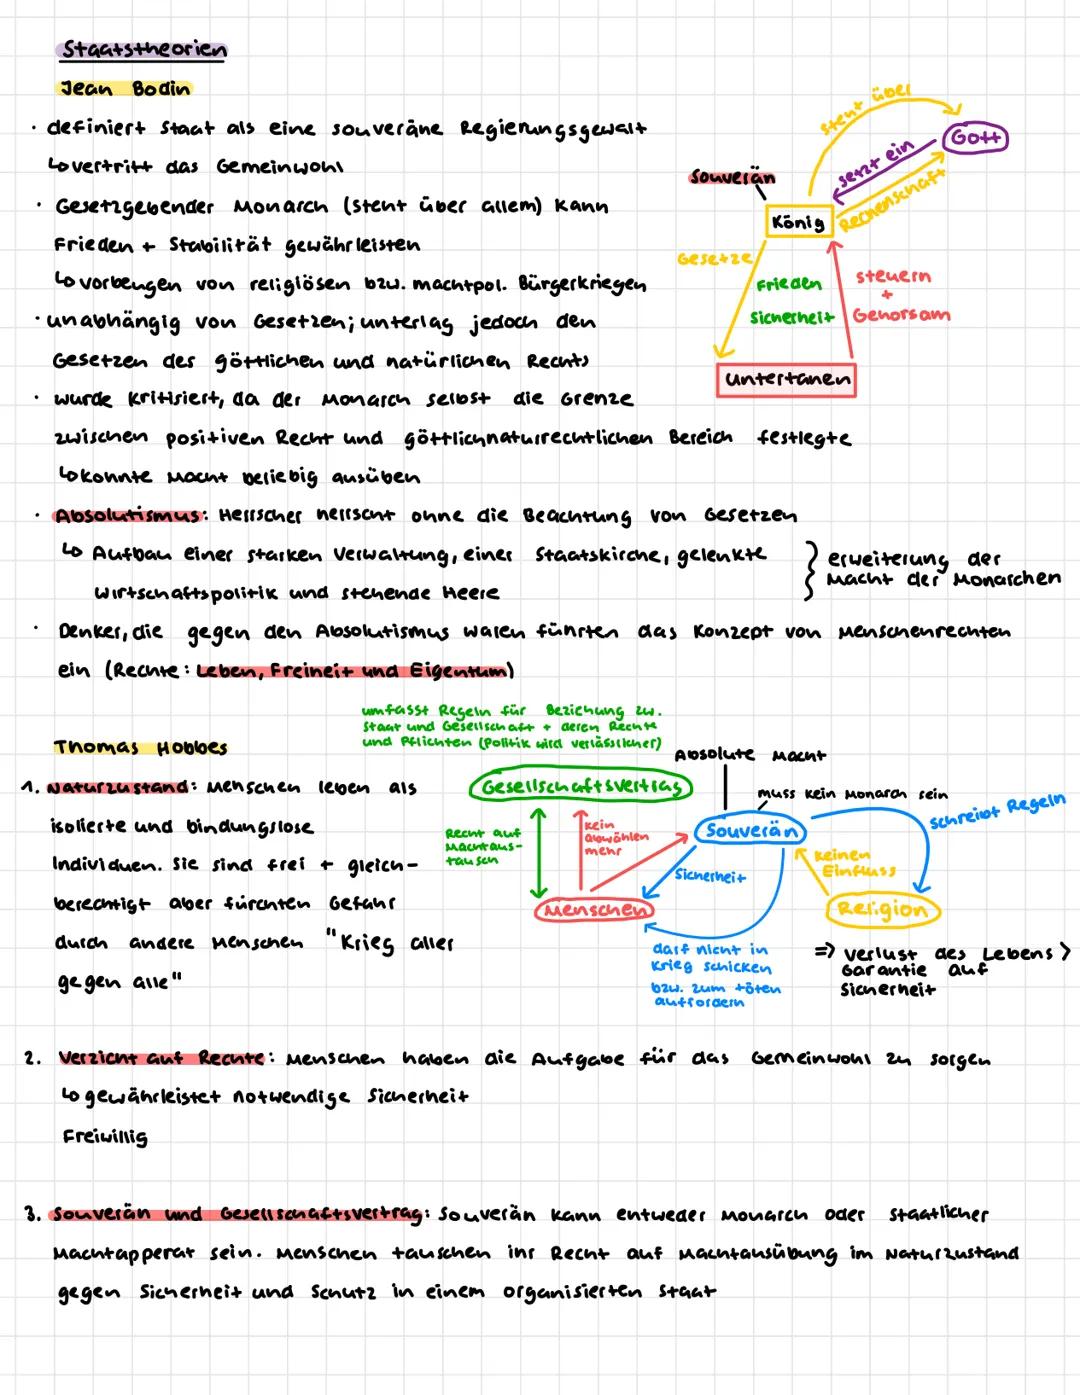 Staatstheorien
Jean Bodin
· definiert Staat als eine souveräne Regierungsgewalt
↳ vertritt das Gemeinwohl
· Gesetzgebender Monarch (steht über allem) kann
Frieden + Stabilität gewährleisten
↳ vorbeugen von religiösen bzw. machtpol. Bürgerkriegen
· unabhängig von Gesetzen; unterlag jedoch den
Gesetzen des göttlichen und natürlichen Rechts
· wurde kritisiert, da der Monarch selbst die Grenze
zwischen positiven Recht und göttlichnaturrechtlichen Bereich festlegte
↳ konnte Macht beliebig ausüben
steht über
Gott
setzt ein
Rechenschaft
Souverän
König
Gesetze
Frieden
Sicherheit
steuern
+
Gehorsam
Untertanen
· Absolutismus: Herrscher herrscht ohne die Beachtung von Gesetzen
↳ Aufbau einer starken Verwaltung, einer Staatskirche, gelenkte
Wirtschaftspolitik und stehende Heere
} erweiterung der
Macht der Monarchen
· Denker, die gegen den Absolutismus waren führten das Konzept von Menschenrechten
ein (Rechte: Leben, Freiheit und Eigentum)
Thomas Hobbes
1. Naturzustand: Menschen leben als
isolierte und bindungslose
Individuen. Sie sind frei + gleich-
berechtigt aber fürchten Gefahr
durch andere Menschen "Krieg aller
gegen alle"
umfasst Regeln für Beziehung zw.
Staat und Gesellschaft + deren Rechte
und Pflichten (Politik wird verlässlicher)
Gesellschaftsvertrag
Absolute Macht
muss kein Monarch sein
Souverän
schreibt Regeln
Recht auf
Machtaus-
tausch
kein
abwählen
mehr
Sicherheit
keinen
Einfluss
Menschen
Religion
darf nicht in
Krieg schicken
bzw. zum töten
auffordern
=> verlust des Lebens >
Garantie auf
Sicherheit
2. Verzicht auf Rechte: Menschen haben die Aufgabe für das Gemeinwohl zu sorgen
↳ gewährleistet notwendige Sicherheit
Freiwillig
3. Souverän und Gesellschaftsvertrag: Souverän kann entweder Monarch oder staatlicher
Machtapperat sein. Menschen tauschen ihr Recht auf Machtausübung im Naturzustand
gegen Sicherheit und Schutz in einem organisierten Staat